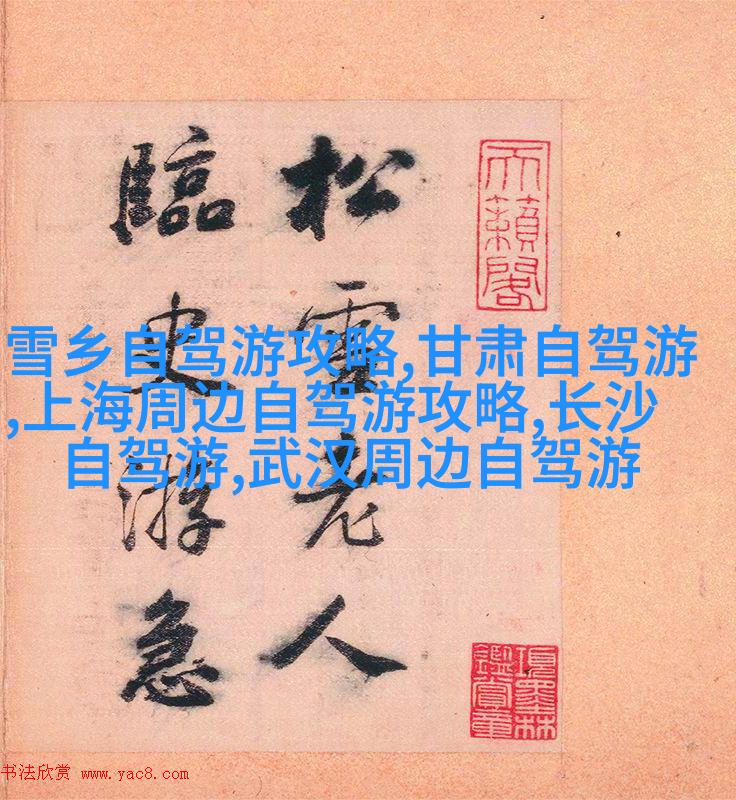 天籟閣
松雪老人
臨史游急
項墨林
鑑賞章
雪乡自驾游攻略,甘肃自驾游
,上海周边自驾游攻略,长沙
自驾游,武汉周边自驾游
书法欣赏 www.yac8.com